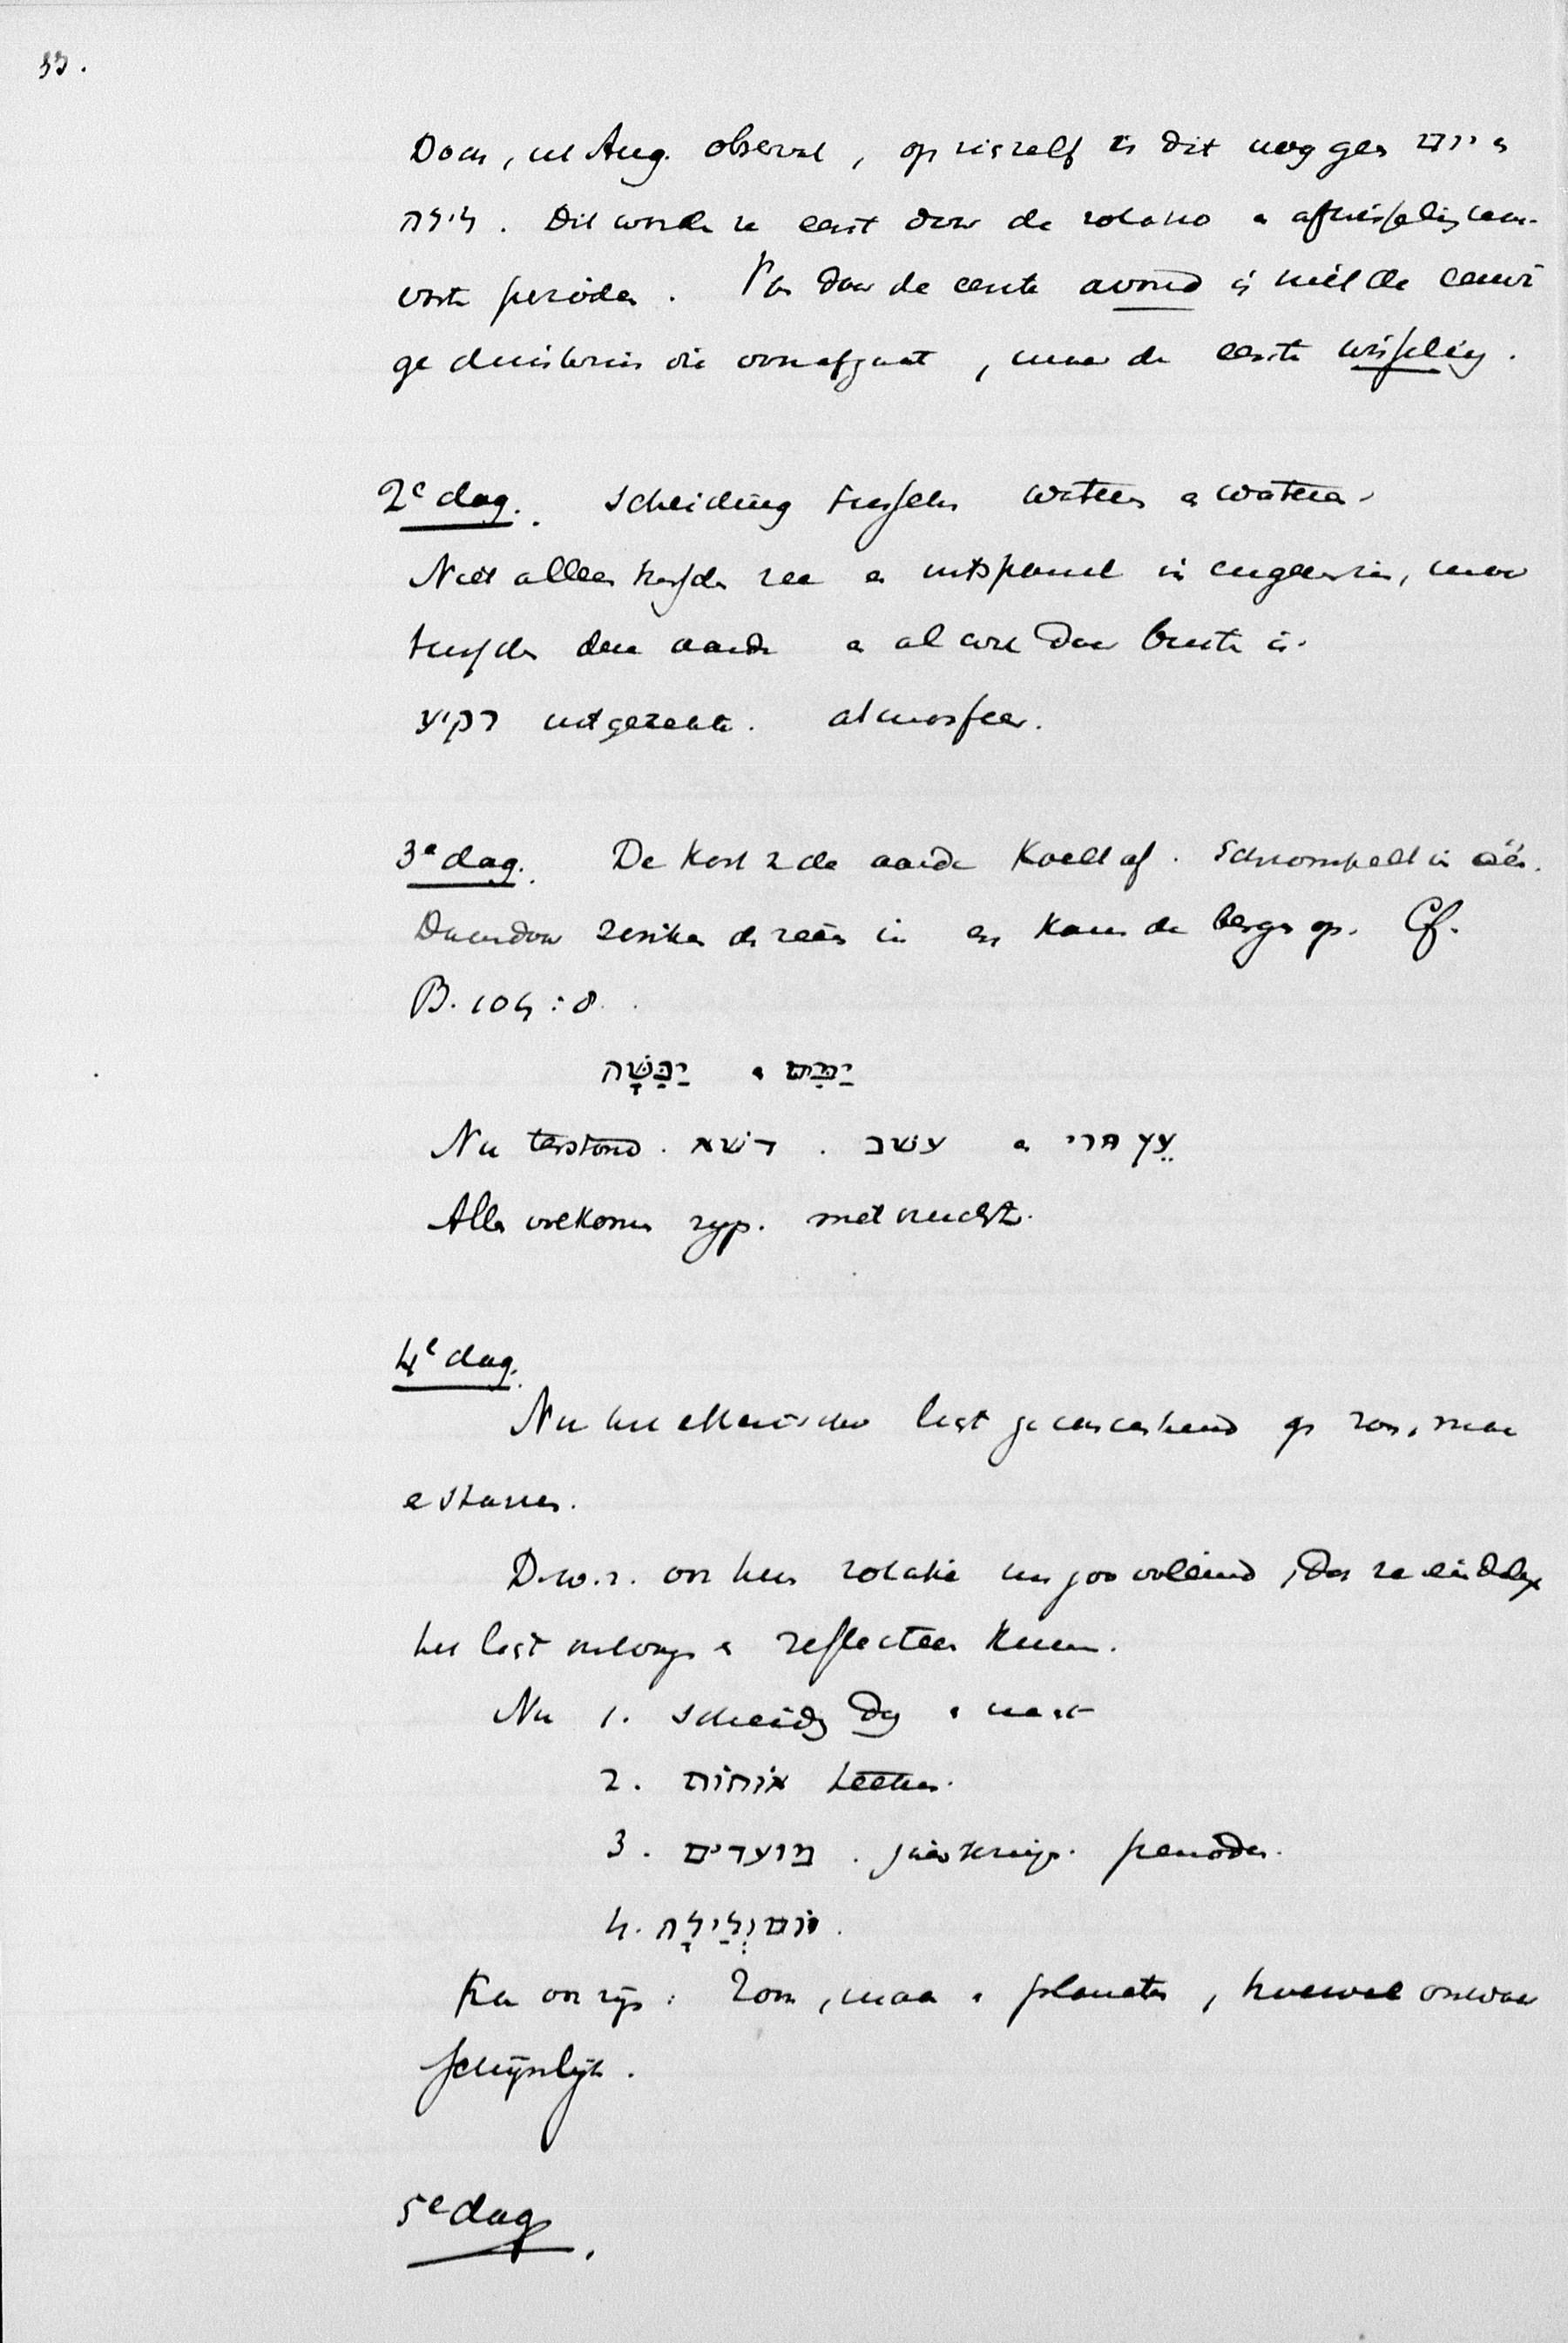 33.
Doch, Aug. , op zichzelf is dit nog gen יום en
לילה. Dit worden ze eerst door de rotatie en
vaste perioden. daar de eerste avond is niet de eeuwi
ge duisternis die voorafgaat, maar de eerste wisseling.
2e dag. Scheiding tusschen wateren en wateren.
Niet alleen tusschen zee en uitspansel in engeren zin, maar
tusschen deze aarde en al wat daar buiten is.
רקיע uitgerekte. atmosfeer.
3e dag. De korst v. de aarde koelt af. Schrompelt in één.
Daardoor zonken de zeeën in en kwamen de bergen op. Cf.
Ps. 104:8.
יַמִּים en יַבָּשָׁה
Nu terstond. דשא. עשב en עֵץ פרי
Alles volkomen rijp. met vruchten.
4e dag.
Nu het licht geconcentreerd op zon, maan
en starren.
D.w.z. hun rotatie voleind, dat ze eindelijk
het licht ontvangen en reflecteren kunnen.
Nu 1. scheiding dag en nacht
2. אותות teeken.
3. מועדים. perioden.
4. יום וְלַיְלָה.
Kan ook zijn: zon, maan en planeten, hoewel onwaar
schijnlijk.
5e dag.